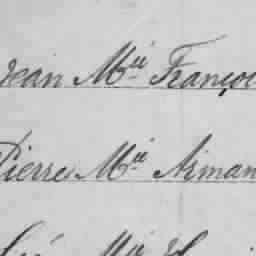 Jean Mie Françoi
Pierre Mie Arman
Mie